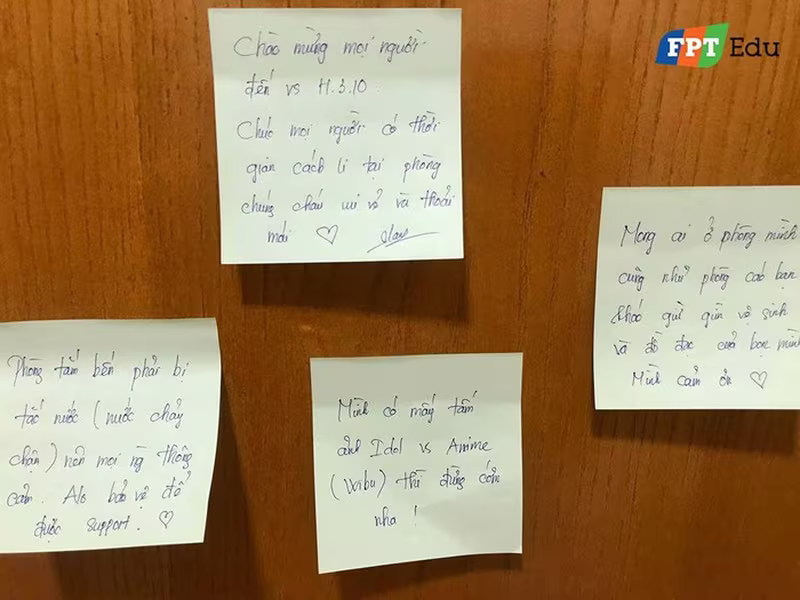 FPT Edu
Chào mừng mọi người
đến vs H.3.10
Chúc mọi người có thời
gian cách li tại phòng
chúng cháu vui vẻ và thoải
mái ♡
Mong ai ở phòng mình
cũng như phòng các bạn
khác giữ gìn vệ sinh
và đồ đạc của bạn mình
Mình cảm ơn ♡
Phòng tắm bên phải bị
tắc nước (nước chảy
chậm) nên mọi ng thông
cảm. Alo bảo vệ để
được support. ♡
Mình có mấy tấm
ảnh Idol vs Anime
(Wibu) thì đừng cấm
nha !